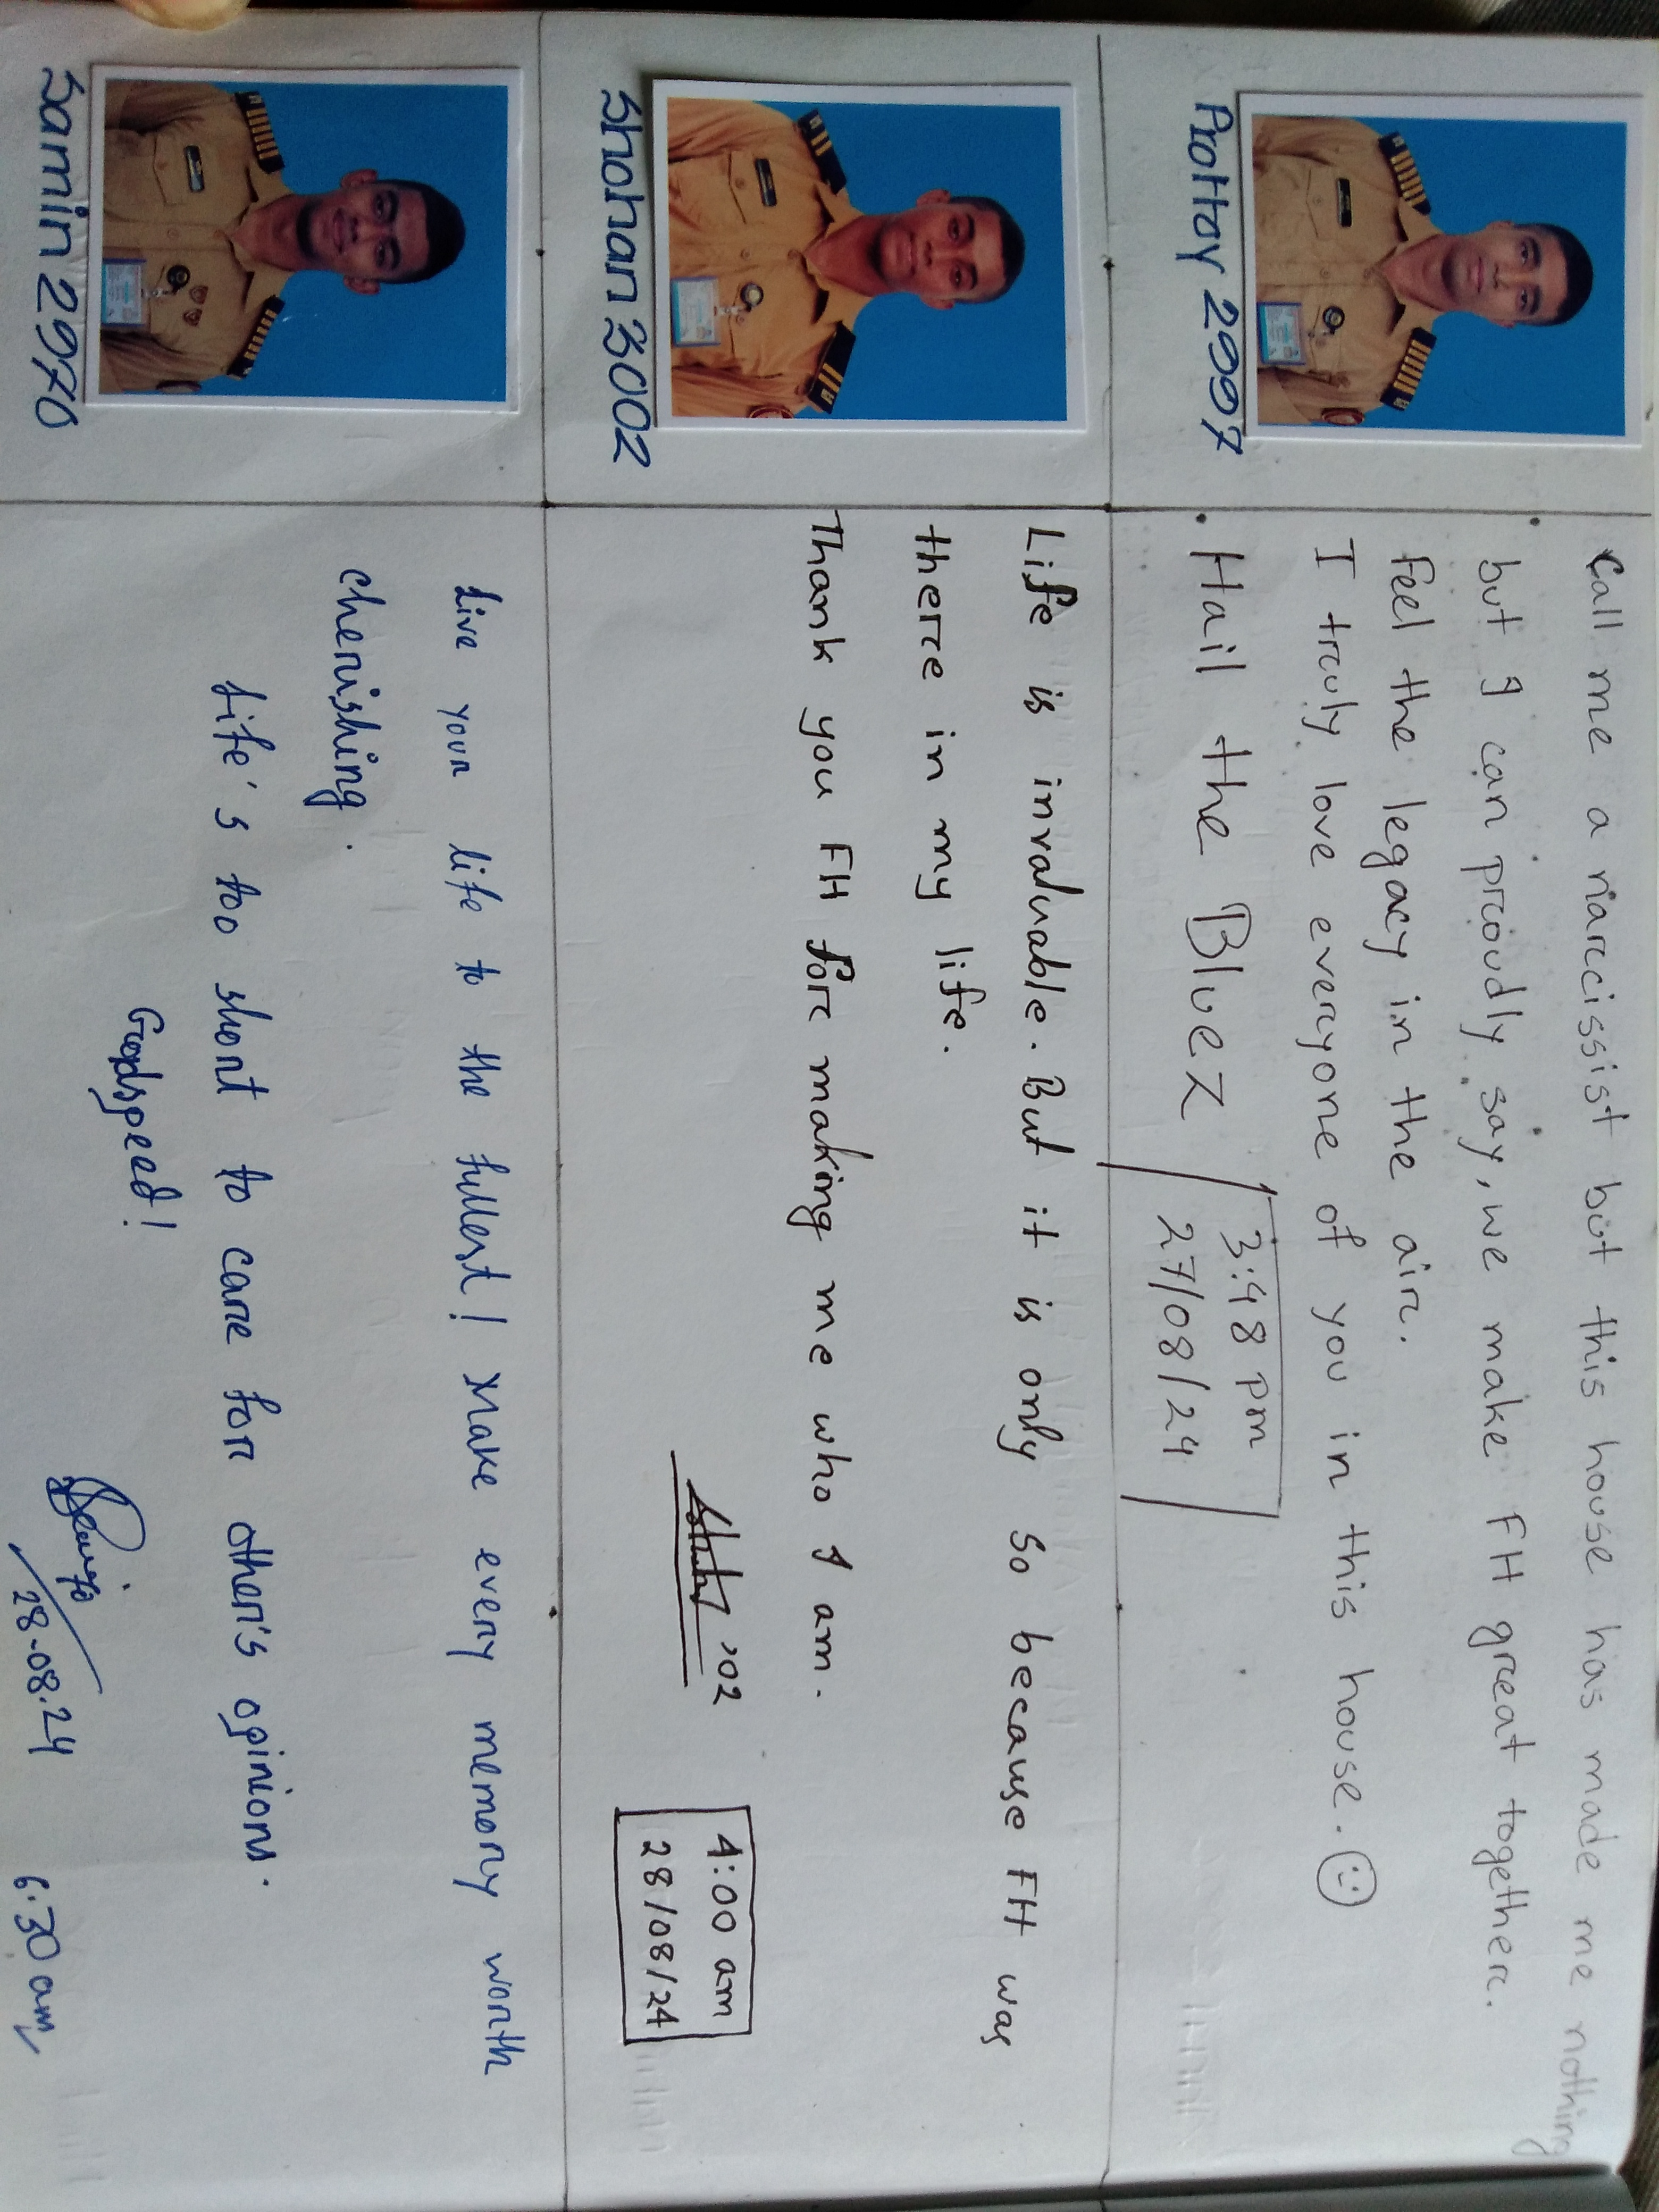 Call me a narccissist but this house has made me nothing
but I can proudly say, we make FH great together.
Feel the legacy in the air.
I truly love everyone of you in this house.
Hail the Bluez
3:48 pm
27/08/24
Prottoy 2997
Life is invaluable. But it is only so because FH was
there in my life.
Thank you FH for making me who I am.
'02
4:00 am
28/08/24
Shohan 3002
Live your life to the fullest! Make every memory worth
cherishing.
Life's too short to care for other's opinions.
Godspeed!
28.08.24
6.30 am
Samin 2970